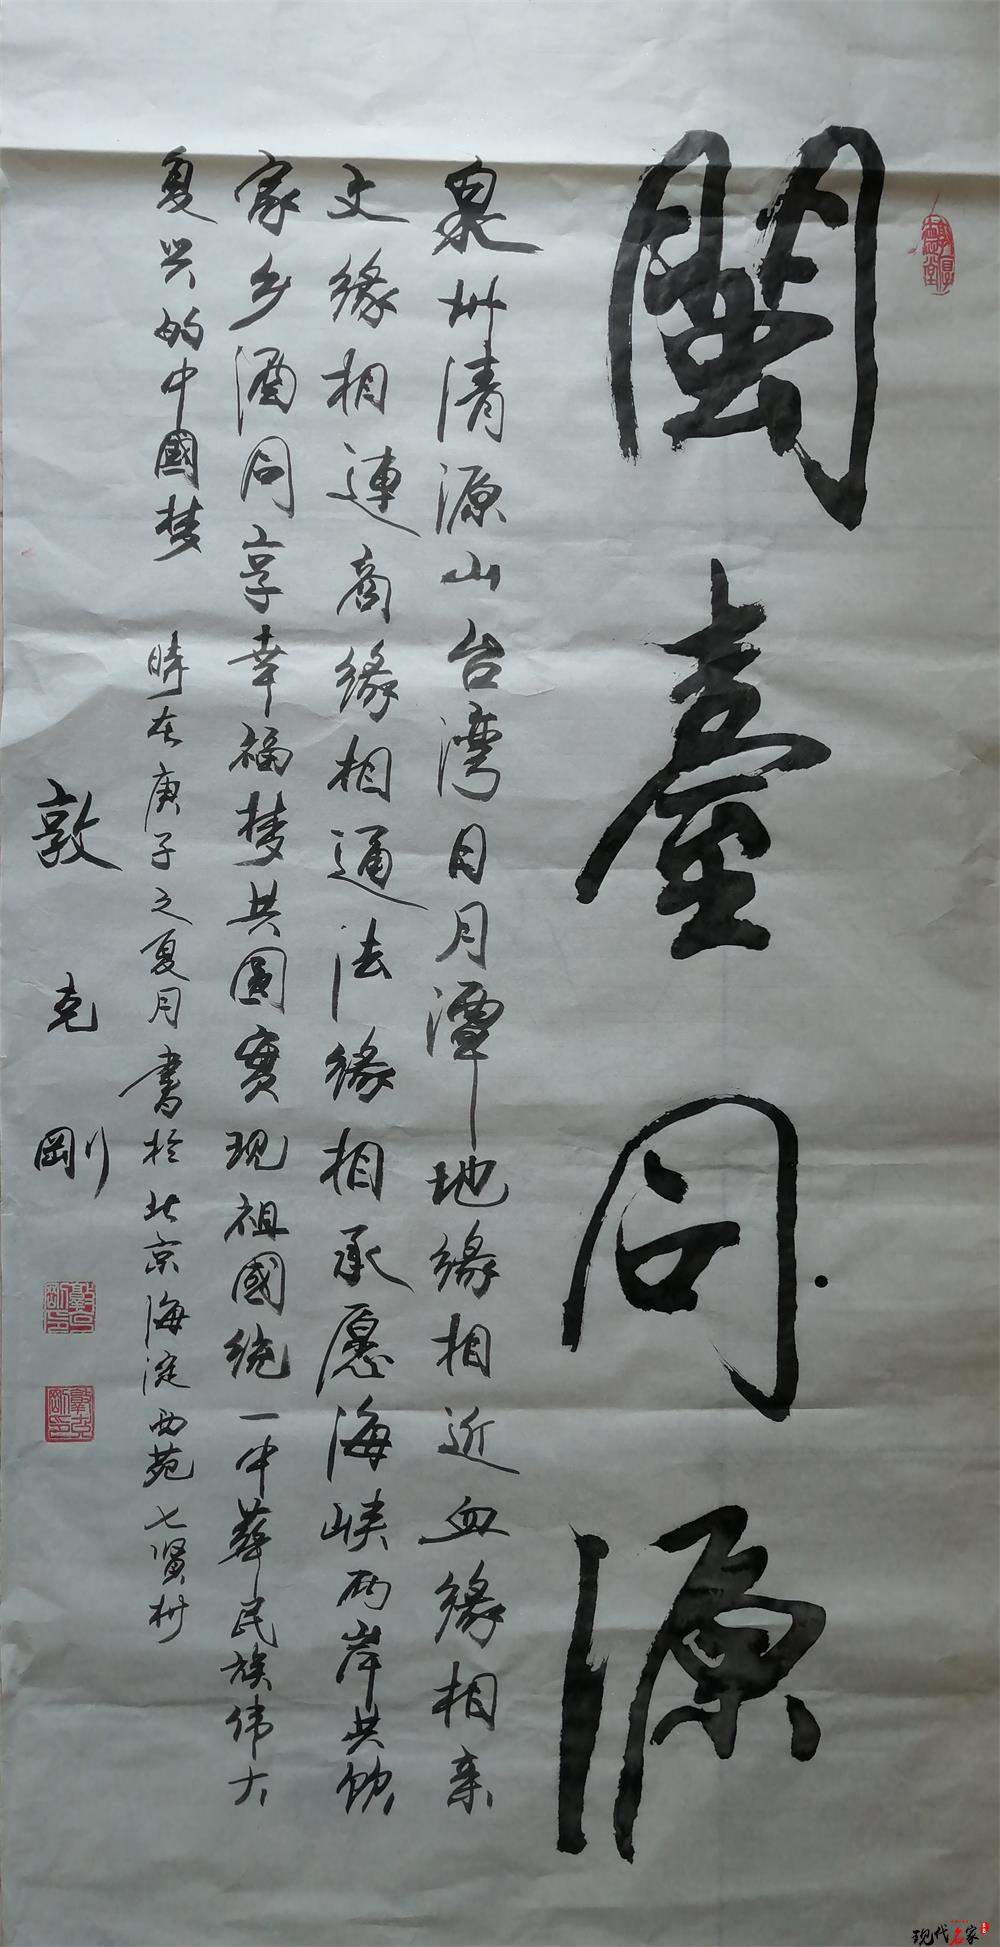 閩臺同源
泉州清源山台湾日月潭地缘相近血缘相亲
文缘相連商缘相通法缘相承愿海峡两岸共饮
家乡酒同享幸福梦共圆实现祖國统一中華民族伟大
复兴的中國梦
時在庚子之夏月書於北京海淀西苑七贤村
敦克剛
现代名家